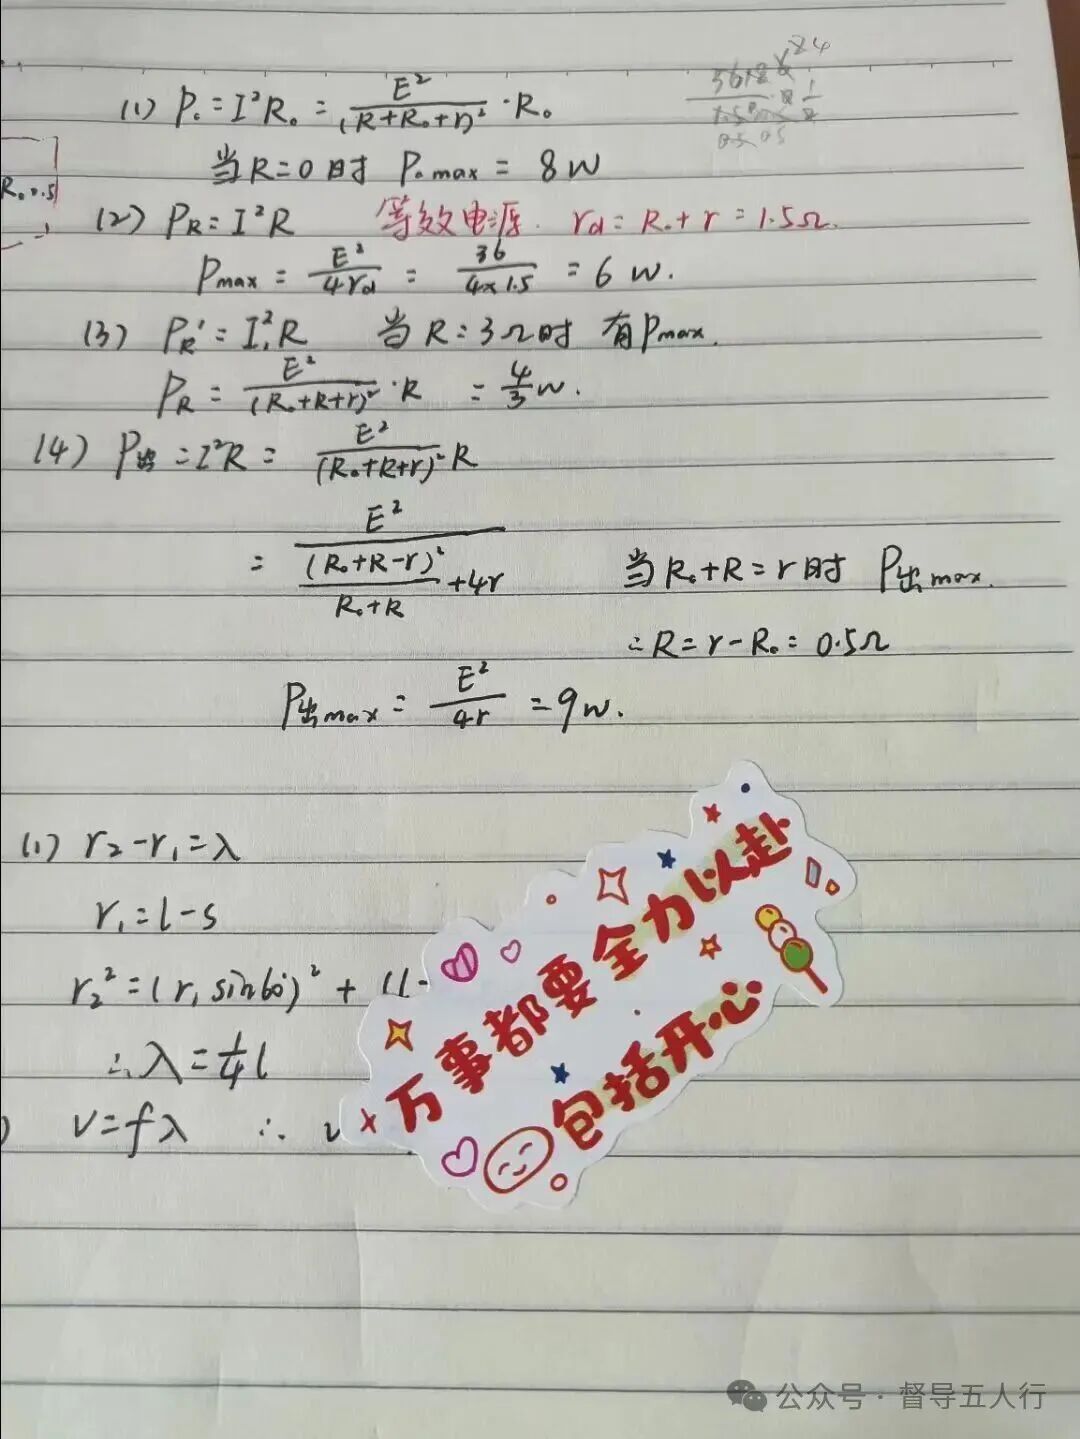 (1) P₀ = I²R₀ = E²/(R+R₀+r)² · R₀
当R=0时 P₀max = 8w
R₀ 0.5
(2) PR = I²R 等效电源. rd = R₀+r = 1.5Ω.
Pmax = E²/4rd = 36/4×1.5 = 6 w.
(3) PR' = I₁²R 当R=3Ω时 有Pmax.
PR = E²/(R₀+R+r)² · R = 4/3 w.
(4) P出 = I²R = E²/(R₀+R+r)² R
= E²/((R₀+R-r)²/(R₀+R) +4r) 当R₀+R=r时 P出max.
∴R=r-R₀=0.5Ω
P出max = E²/4r = 9w.
(1) r₂-r₁=λ
r₁=l-s
r₂²=(r₁ sin60°)² + (l-
∴λ=1/4 l
) v=fλ ∴ v
万事都要全力以赴
包括开心
公众号·督导五人行